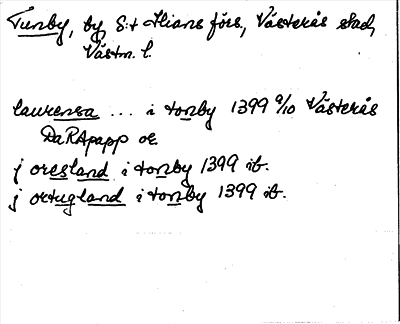 Tunby, by, S:t Ilians förs, Västerås stad,
Västm. l.
laurensa ... i tonby 1399 9/10 Västerås
DaRApapp or.
j oresland i tonby 1399 ib.
j ortugland i tonby 1399 ib.